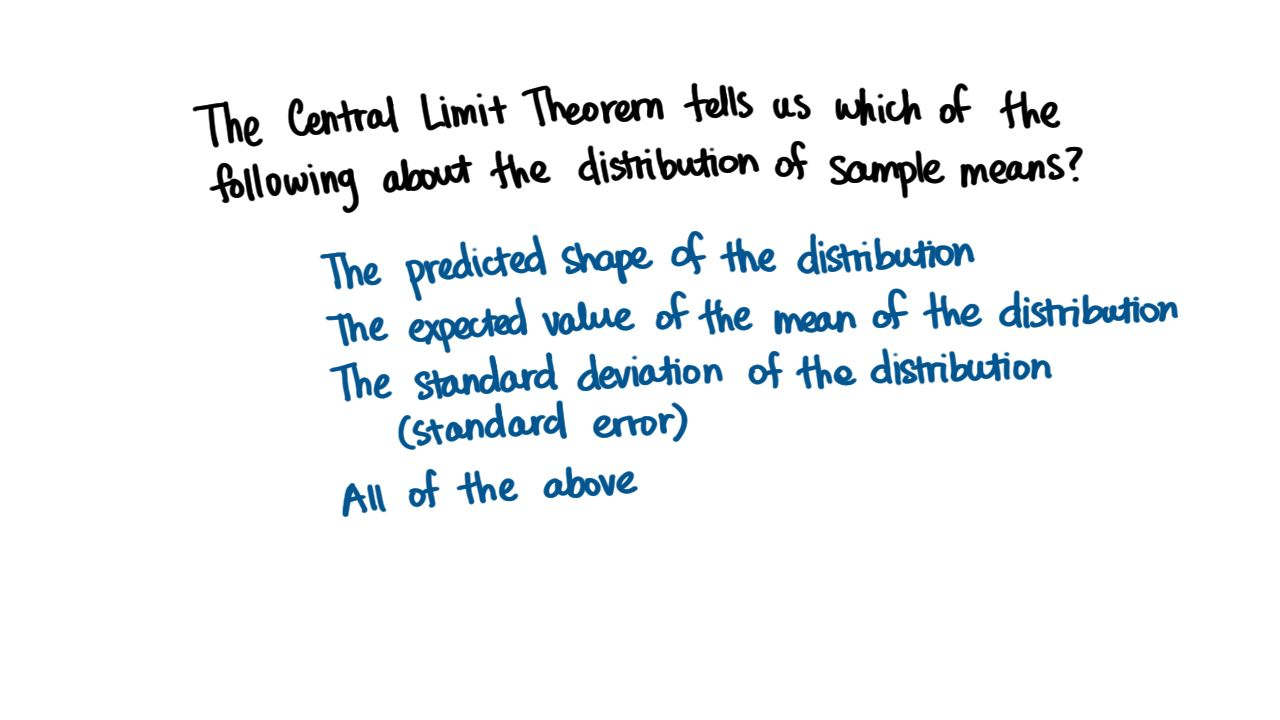 The Central Limit Theorem tells us which of the
following about the distribution of sample means?
The predicted shape of the distribution
The expected value of the mean of the distribution
The standard deviation of the distribution
(standard error)
All of the above